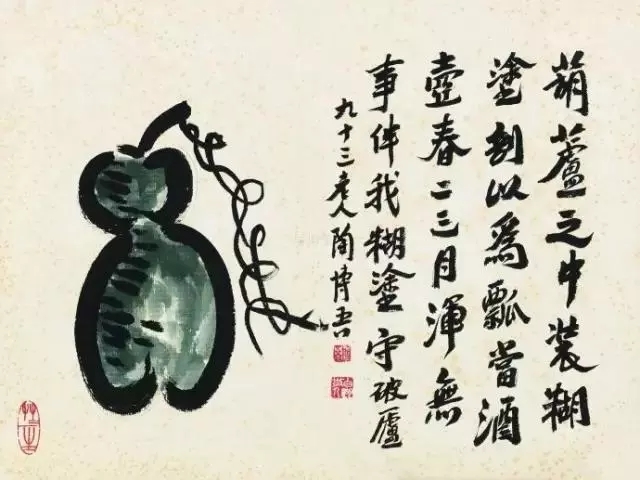 葫蘆之中裝糊
塗刳以為瓢當酒
壺春二三月渾無
事伴我糊塗守破廬
九十三老人陶博吾